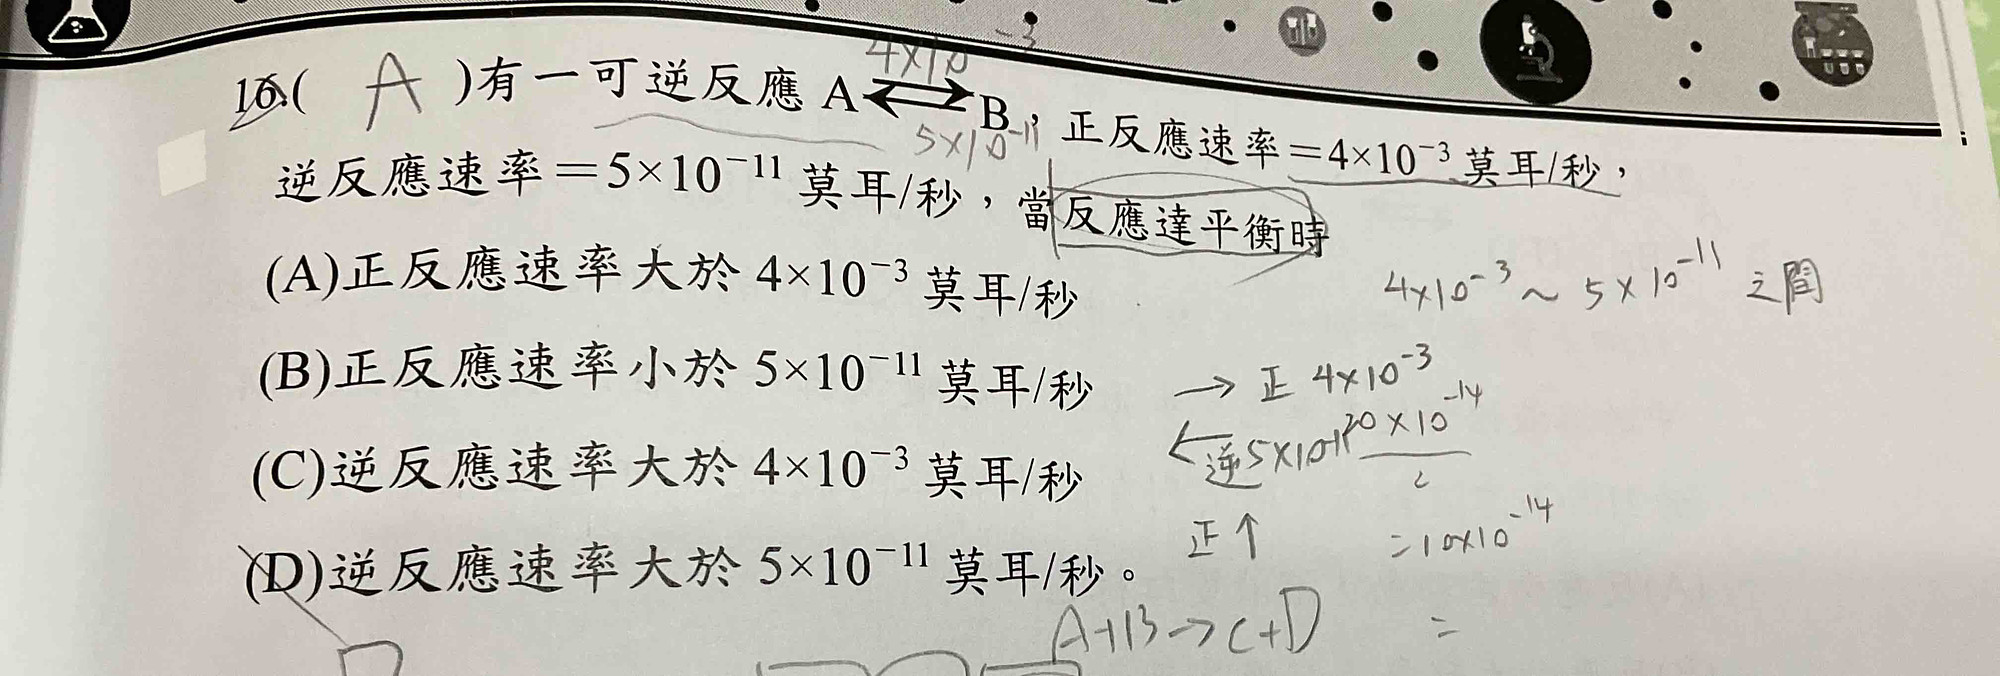 4×10⁻³
16.( A )有一可逆反應 A⇄B，正反應速率＝4×10⁻³ 莫耳/秒，
5×10⁻¹¹
逆反應速率＝5×10⁻¹¹ 莫耳/秒，當反應達平衡時
(A)正反應速率大於 4×10⁻³ 莫耳/秒
4×10⁻³～5×10⁻¹¹ 之間
(B)正反應速率小於 5×10⁻¹¹ 莫耳/秒
→ 正 4×10⁻³
(C)逆反應速率大於 4×10⁻³ 莫耳/秒
← 逆 5×10⁻¹¹
20×10⁻¹⁴
正↑
=10×10⁻¹⁴
(D)逆反應速率大於 5×10⁻¹¹ 莫耳/秒。
A+B→C+D
=